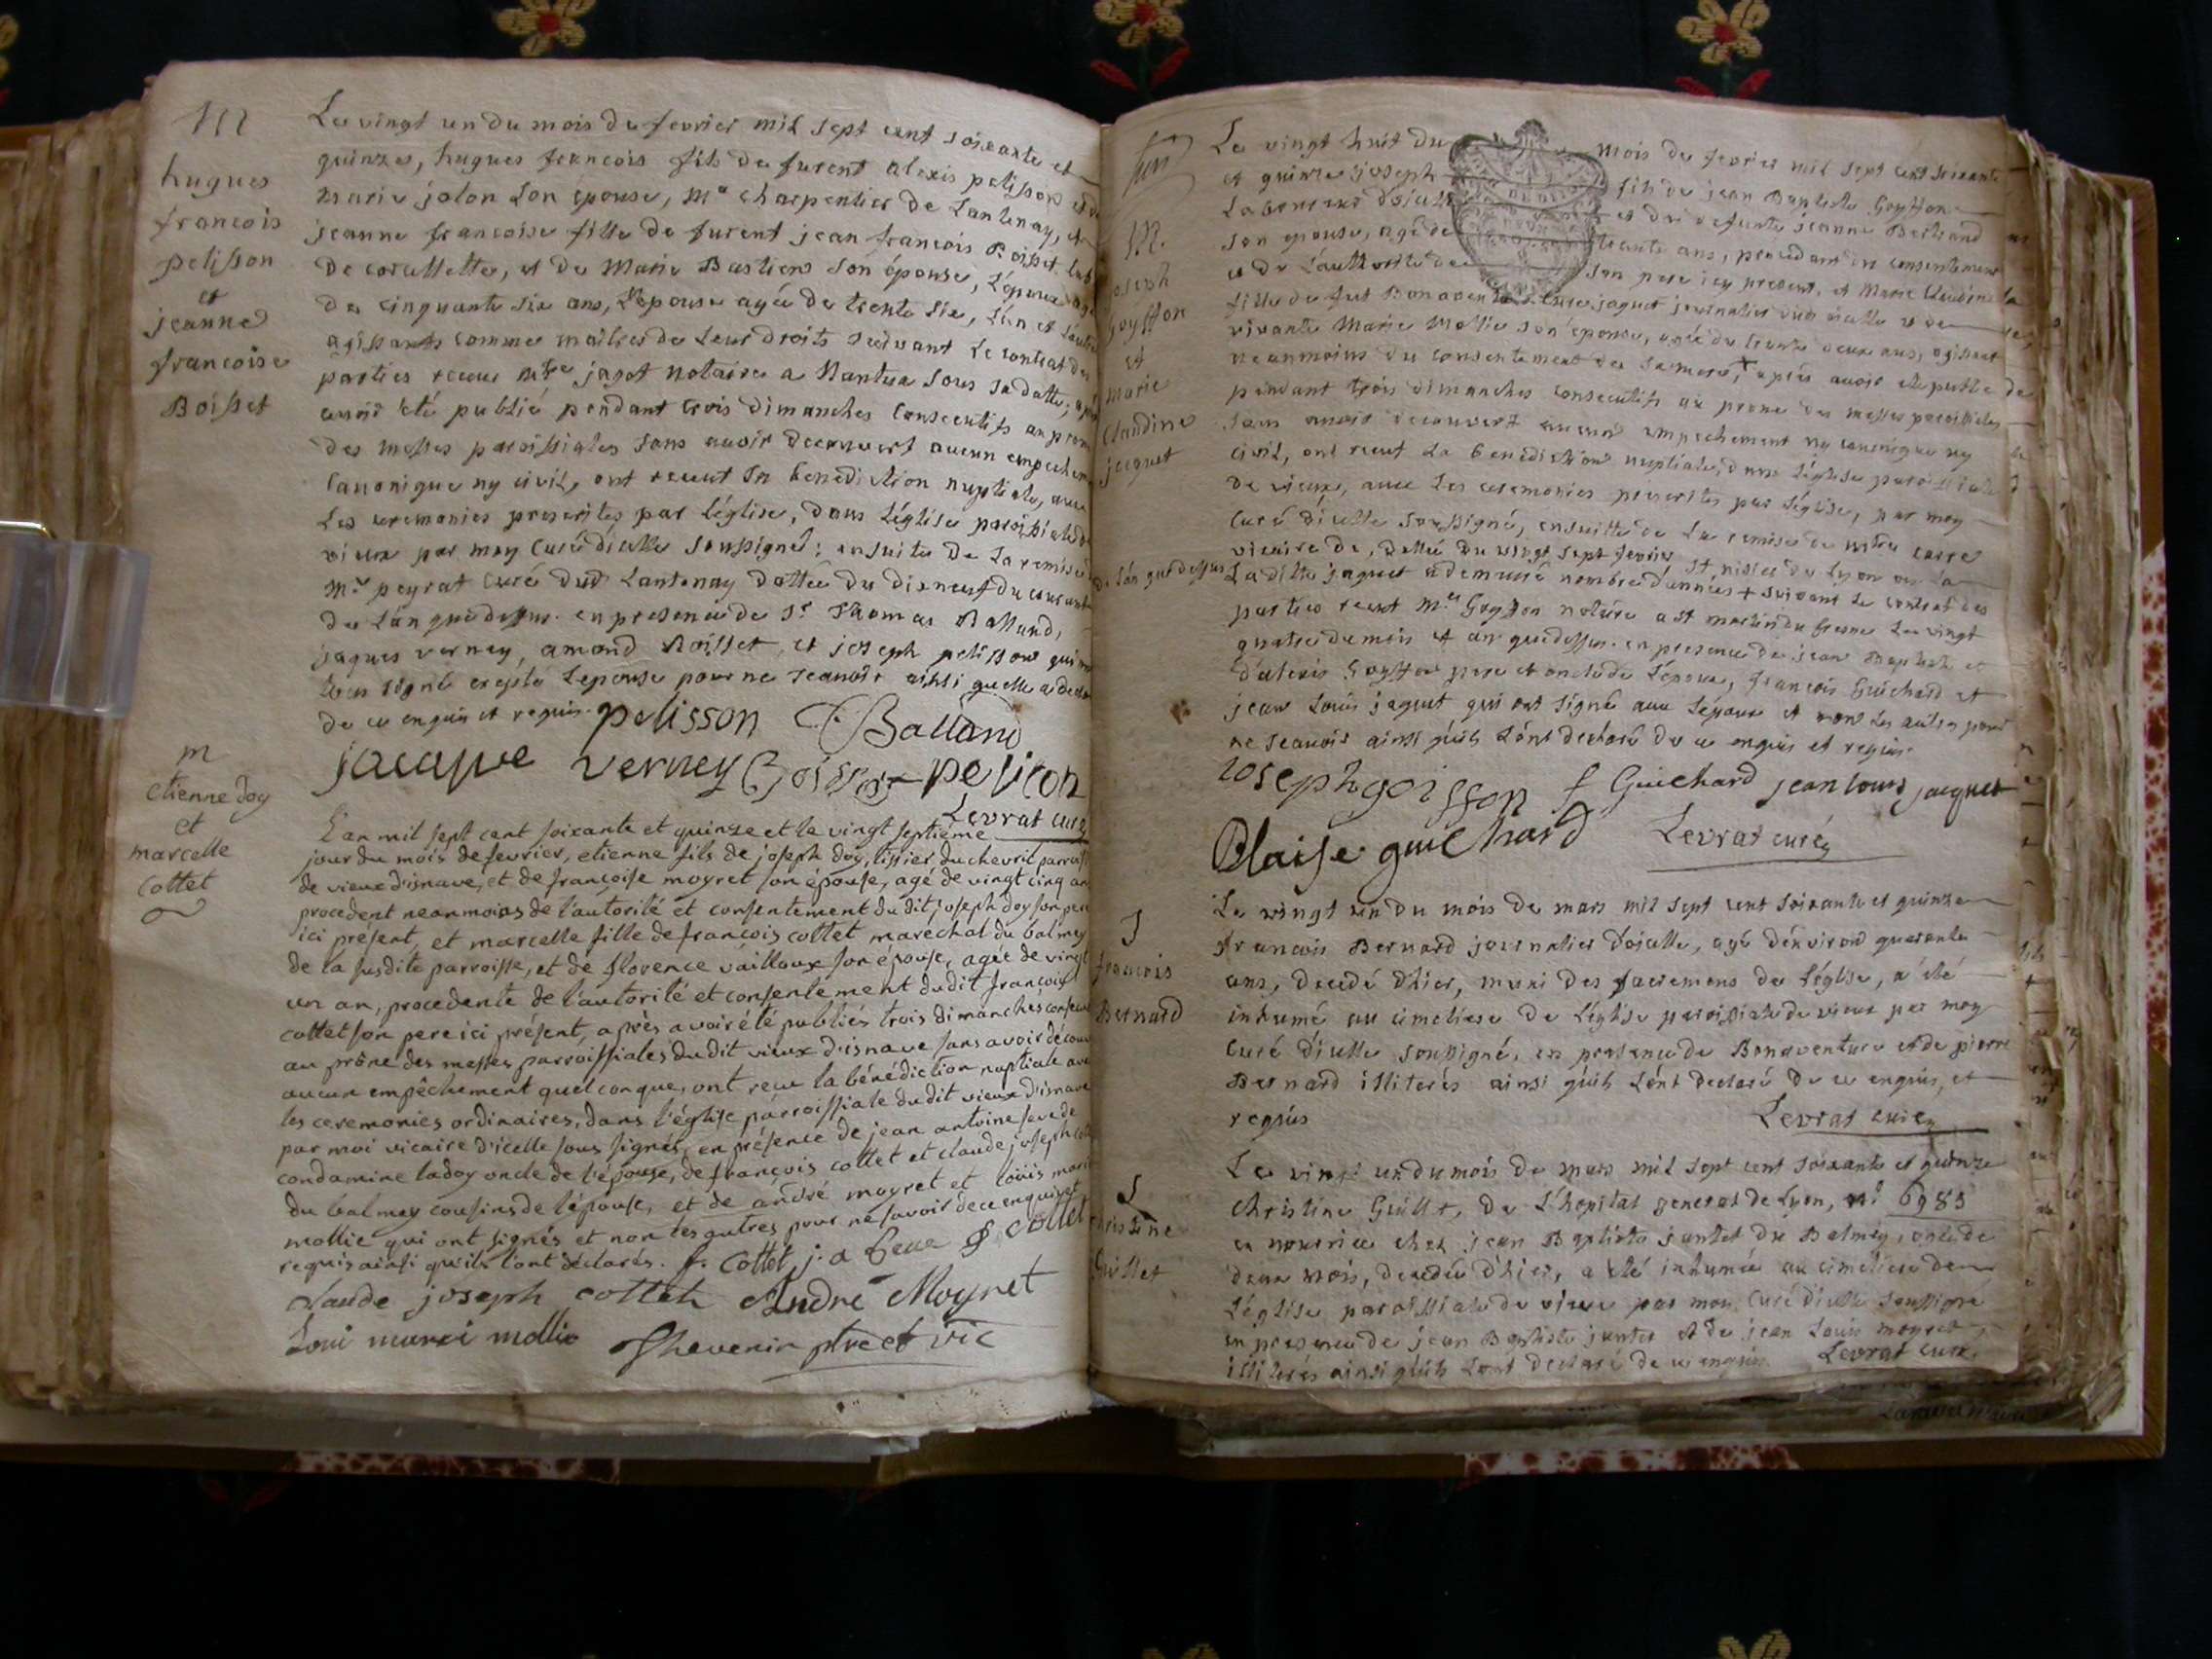 M
hugues
francois
pelisson
et
jeanne
francoise
Boisset
Le vingt un du mois de fevrier mil sept cent soixante et
quinze, hugues francois fils de furent alexis pelisson et de
marie jolon son épouse, me charpentier de Lantenay, et
jeanne francoise fille de furent jean francois Boisset lab
de corcellette, et de Marie Bastien son épouse, L'époux agé
de cinquante six ans, L'epouse agée de trente six, L'un et L'autre
agissants comme maitres de Leur droits suivant Le contrat des
parties receu mtre jagot notaire a Nantua sous sa datte; aprè
avoir été publié pendant trois dimanches consecutifs au prone
des messes paroissiales sans avoir decouvert aucun empechem
canonique ny civil, ont receut la benediction nuptiale, avec
Les ceremonies prescrites par L'église, dans L'église paroissiale de
vieux par moy Curé d'icelle soussigné; ensuite de La remise
Mr peyrat Curé dud Lantenay dattée du dixneuf du courant
de L'an que dessus. en presence de Sr Thomas Balland,
jaques verney, amond Boisset, et joseph pelisson qui on
tous signé excepte L'epouse pour ne scavoir ainsi quelle a declar
de ce enquis et requis. pelisson Balland
jacque verney Boisset pelison
Levrat curé
m
etienne doy
et
marcelle
Cottet
L'an mil sept cent soixante et quinze et le vingt septiéme
jour du mois de fevrier, etienne fils de joseph doy, tissier du chevril parroisse
de vieux d'isnave, et de françoise moyret son épouse, agé de vingt cinq ans
procedent neanmoins de l'autorité et consentement du dit joseph doy son pere
ici présent, et marcelle fille de françois cottet maréchal du balmey
de la susdite parroisse, et de florence vailloux son épouse, agée de vingt
un an, procedente de l'autorité et consentement du dit françois
cottet son pere ici présent, après avoir été publiés trois dimanches consecu
au prône des messes parroissiales du dit vieux d'isnave sans avoir décou
aucun empêchement quelconque, ont reçu la bénédiction nuptiale ave
les ceremonies ordinaires, dans l'église parroissiale du dit vieux d'isnave
par moi vicaire d'icelle sous signés, en présence de jean antoine de
condamine ladoy oncle de l'épouse, de françois cottet et claude joseph
du balmey cousins de l'épouse, et de andré moyret et louis marie
mollie qui ont signés et non les autres pour ne savoir de ce enquis et
requis ainsi qu'ils l'ont déclarés. f. Cottet j. a f Cottet
claude joseph cottet André Moyret
Loui marei mollie Thevenin ptre et vic
M.
joseph
Goyffon
et
marie
Claudine
jacquet
Le vingt huit du mois de fevrier mil sept cent soixante
et quinze joseph fils de jean Baptiste Goyffon
Laboureur d'oiselle et de defunte jeanne Bertrand
son epouse, agé de trente ans, procedant du consentement
et de L'authorité de son pere icy present, et Marie Claudine
fille de fut Bonaventure jaquet journalier dud oiselle et de
vivante Marie Mollie son épouse, agée de trente deux ans, agissant
neanmoins du consentement de sa mere, + après avoir été publié
pendant trois dimanches consecutifs au prone des messes paroissiales
sans avoir decouvert aucun empechement ny canonique ny
civil, ont receut La benediction nuptiale, dans L'église paroissiale
de vieux, avec Les ceremonies prescrites par L'église, par moy
Curé d'icelle soussigné, ensuitte de La remise de mtre carre
vicaire de, dattée du vingt sept fevrier St nisier de Lyon ou La
de L'an que dessus Laditte jaquet a demeuré nombre d'années + suivant Le contrat des
parties receut Me Goyffon notaire a St martin du fresne Le vingt
quatre du mois et an que dessus. en presence de jean Baptiste et
d'alexis Goyffon pere et oncle de L'époux, françois Guichard et
jean Louis jaquet qui ont signé avec L'époux et non Les autres pour
ne scavoir ainsi qu'ils L'ont declaré de ce enquis et requis.
Joseph goisffon f Guichard jean louis jacquet
Blaise guichard Levrat curé
S
francois
Bernard
Le vingt un du mois de mars mil sept cent soixante et quinze
francois Bernard journalier d'oiselle, agé d'environ quarante
ans, decedé d'hier, muni des sacremens de L'église, a été
inhumé au cimetiere de L'église paroissiale de vieux par moy
Curé d'icelle soussigné, en presence de Bonaventure et de pierre
Bernard illiterés ainsi qu'ils L'ont declaré de ce enquis, et
requis
Levrat curé
S
christine
Guillet
Le vingt un du mois de mars mil sept cent soixante et quinze
christine Guillet, de L'hopital general de Lyon, no 6985
en nourrice chez jean Baptiste juntet du Balmey, agée de
deux mois, decedée d'hier, a été inhumée au cimetiere de
L'église paroissiale de vieux par moy Curé d'icelle soussigné
en presence de jean Baptiste juntet et de jean Louis moyret,
illiterés ainsi qu'ils L'ont declaré de ce enquis. Levrat curé.